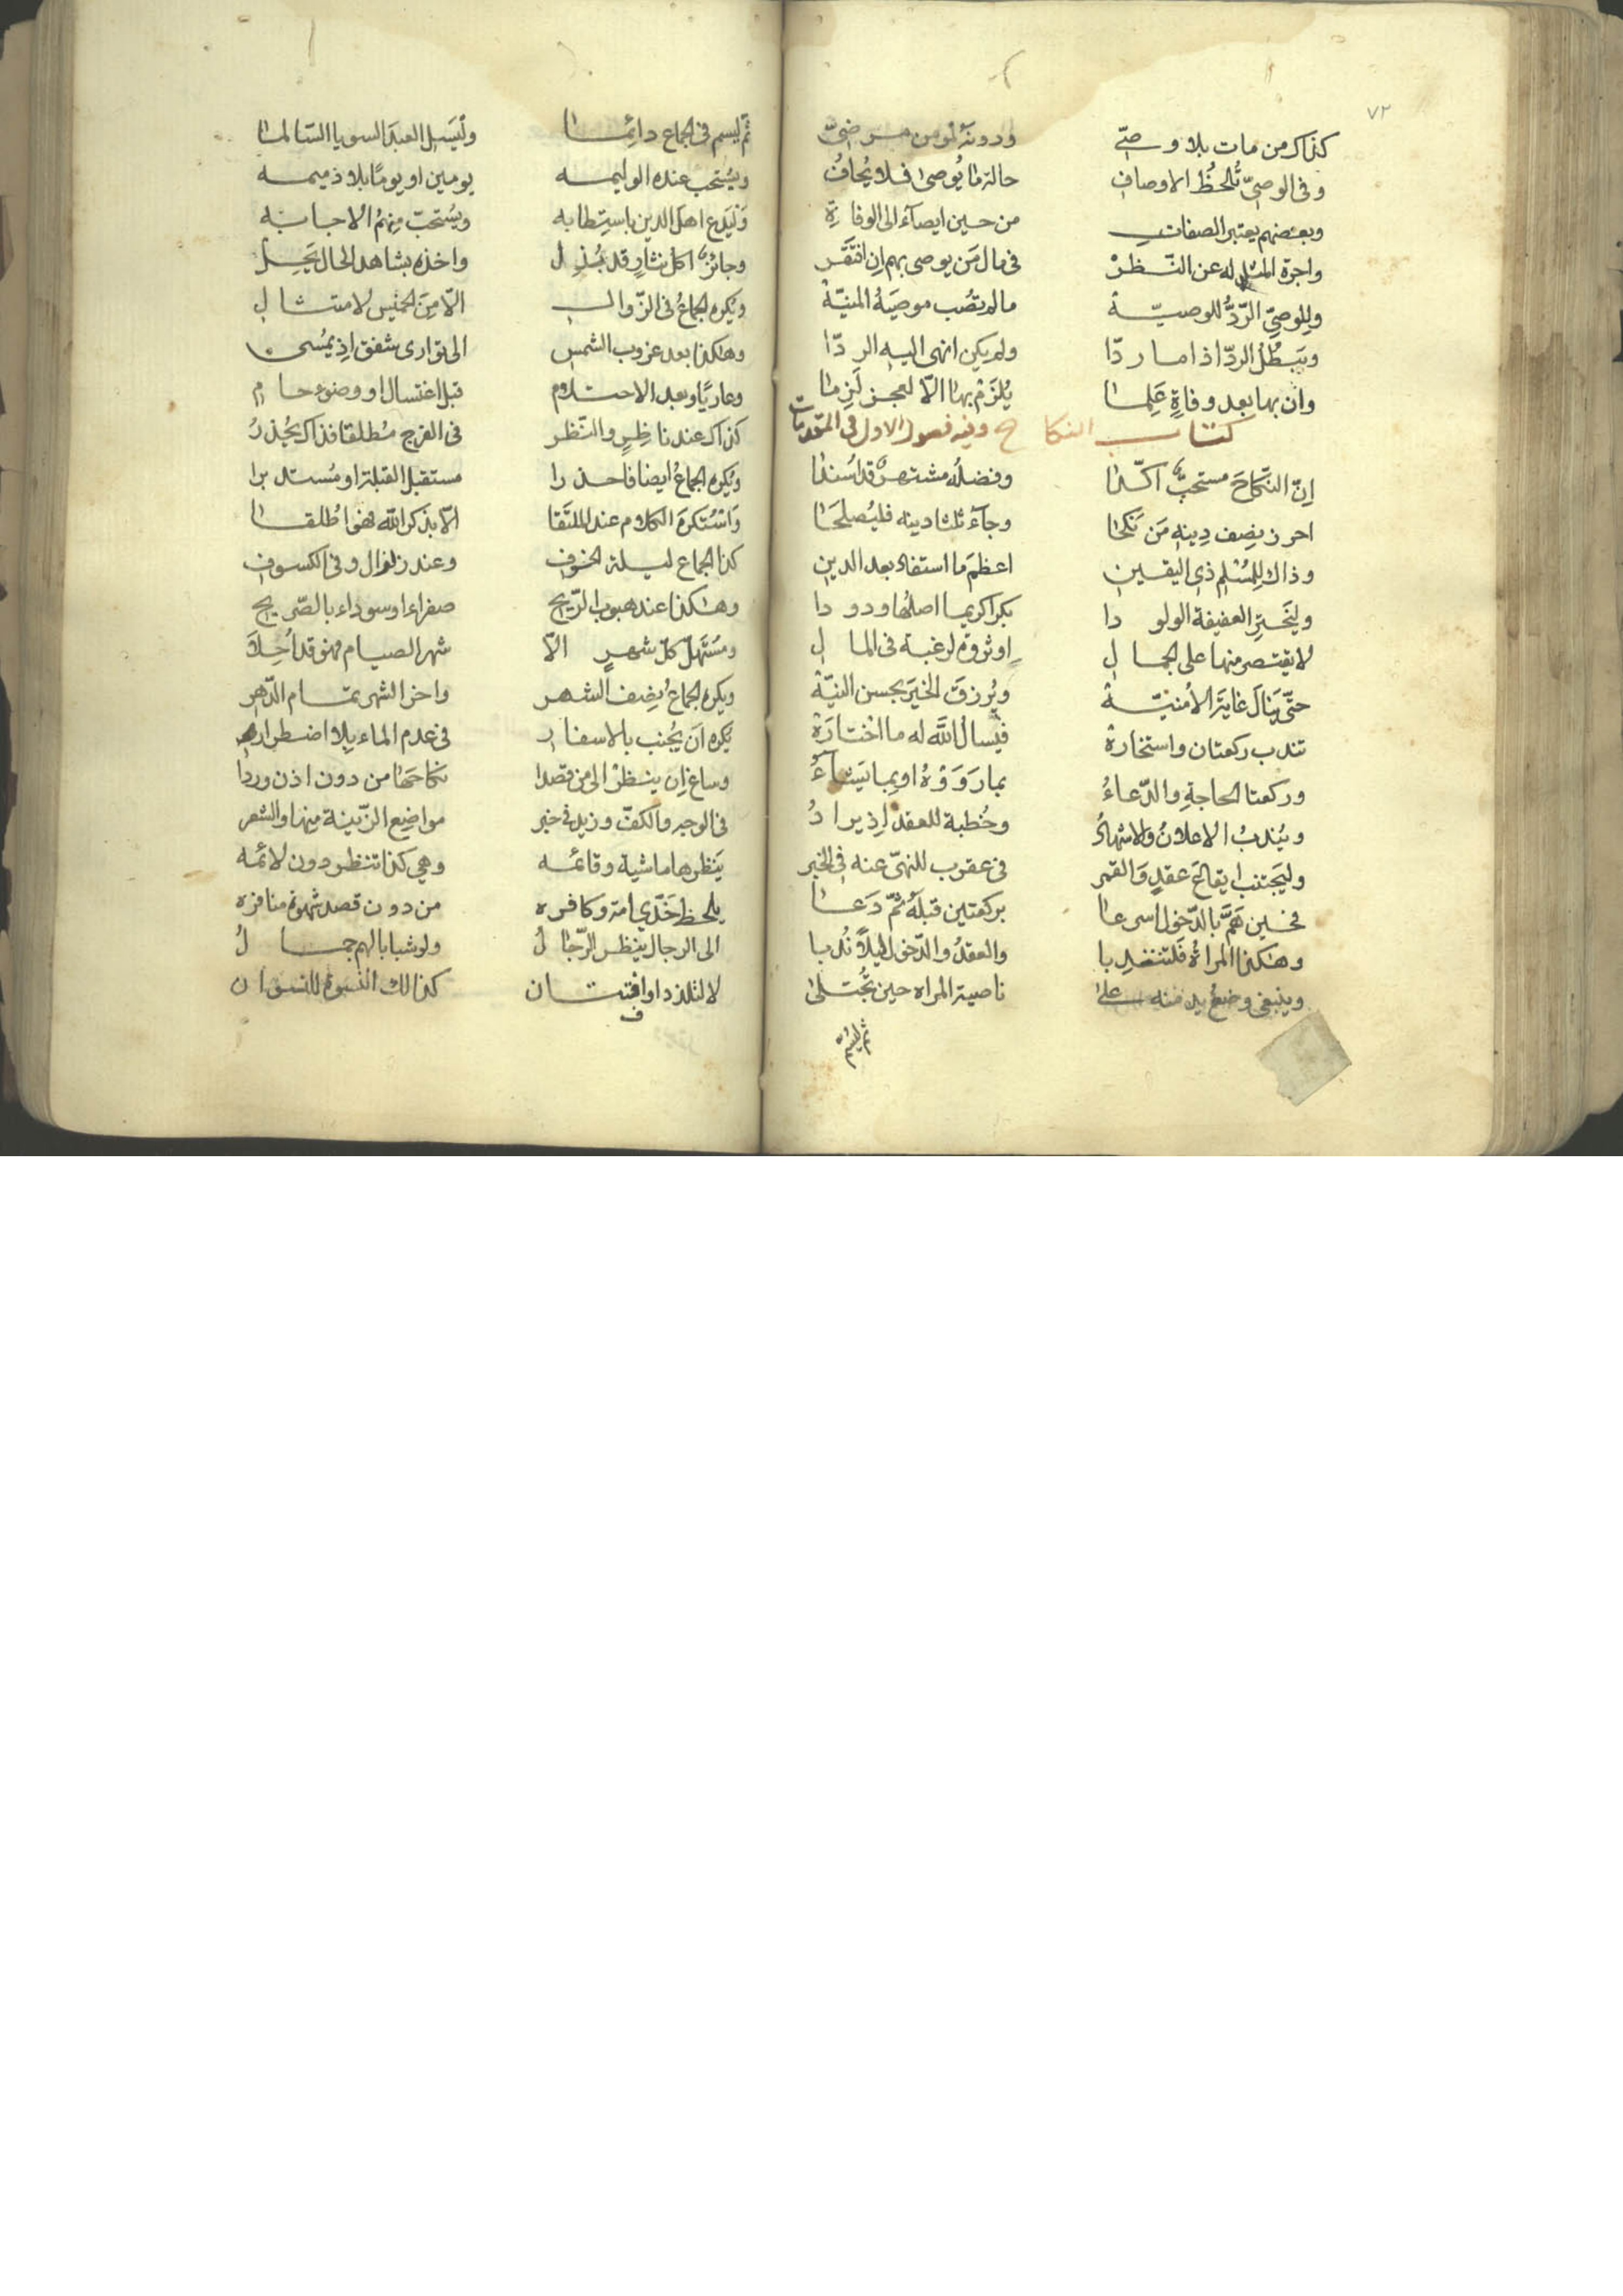 ٧٢
كذاك من مات بلا وصيّ ودونه لمومن مرضيّ
وفى الوصيّ تُلحظُ الاوصاف حالة ما يُوصى فلا يُحافُ
وبعضهم يعتبر الصفات من حين ايصآء الى الوفاة
واجرة المثل له عن النّظرْ فى مال مَن يوصى بهم اِن افتقَرْ
وللوصىّ الرّدُّ للوصيّةْ ما لم تصُب موصيَهُ المنيّةْ
ويَبطُلُ الردّ اذا ما ردّا ولم يكن انهى اليه الردّا
وان بها بعد وفاةٍ عَلِما يُلزَمْ بها الّا لعجز لَزِما
كتاب النكاح وفيه فصول الاول فى المقدمات
اِنّ النّكاحَ مستحبٌّ اكّدا وفضلُه مشتهرٌ قد اُسندا
احرز نِصف دِينِه مَن نَكحَا وجآء ثلثا دينه فليُصلحَا
وذاك لِلمُسْلِم ذى اليقين اعظمَ ما استفاد بعد الدين
وليَخترِ العفيفة الولودا بكرا كريما اصلُها ودودا
لا يقتصر منها على الجمال او ثروة لرغبة فى المال
حتّى يَنالَ غايَةَ الاُمنيّةْ ويُرزقَ الخيرَ بحسن النيّةْ
تندب ركعتان واستخارةْ فيَسالُ اللّه له ما اختارَهْ
وركعتا الحاجةِ والدّعاءُ بما رَوَوْهُ او بما يَشآءُ
ويُندبُ الاعلانُ والاشهادُ وخُطبة للعقد اِذ يرادُ
وليَجتنب ايقاعَ عقدٍ وَالقمر فى عقرب للنهى عنه فى الخبر
فحين هَمَّ بالدّخول اسرعا بركعتين قبلَهُ ثمّ دَعَا
وهكذا المراةُ فلتنتدبا والعقدُ والدّخول ليلًا نُدبا
وينبغى وضعُ يد منه على ناصية المراه حين تُجتلى
ثم ليسم
ثمّ ليسم فى الجماع دائما وليَسَلِ العبدَ السويا السّالما
ويُستحب عنده الوليمه يومين او يومًا بلا ذميمه
وَليَدع اهل الدين باستطابه ويُستحبّ مِنهمُ الاجابَه
وجائزٌ اكل نثارٍ قد بُذِل واخذه بشاهد الحال يَحِلّ
ويُكره الجماعُ فى الزّوال الّا مِنَ الخميس لامتثال
وهكذا بعد غروب الشمس الى توارى شفق اِذ يمُسى
وعاريًا وبعد الاحتلام قبل اغتسال او وضوء حام
كذاك عند ناظِرٍ والنّظر فى الفرج مُطلقا فذاك يُحذرُ
ويُكره الجماعُ ايضا فاحذرا مستقبل القبلة او مُستدبرا
وَاسْتُكرَهَ الكلام عند الملتَقا الّا بذكر اللّه فهْوَ اُطلقا
كذا الجماع ليلة الخسوف وعند زلزال وفى الكسوف
وهكذا عند هبوب الرّيح صفراء او سوداء بالصّريح
ومُستَهَلّ كلّ شهرٍ الّا شهر الصيام فهْو قد اُحِلّا
ويكره الجماعُ نِصف الشهر واخر الشهر تمام الدّهر
يُكره اَن يُجنب بالاسفار فى عدم الماء بِلا اضطرار
وساغ اِن ينظرْ الى من قصدا نكاحَها من دون اذن وردا
فى الوجه والكفّ وزيد فى خبر مواضع الزّينة مِنها والشعر
يَنظرها ماشية وقائمه وهى كذا تنظر دون لائمه
يلحظ خَدَّى امة وكافره من دون قصد شهوة منافره
الى الرجال ينظر الرّجالُ ولو شبابا لهم جمالُ
لا لتلذد او افتتان كذالك النسوة للنسوان